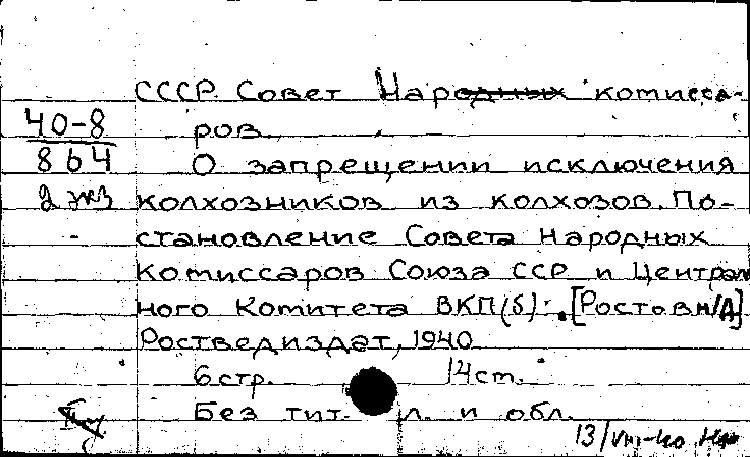 СССР. Совет Народных комисса-
40-8 ров.
864 О запрещении исключения
2 экз колхозников из колхозов. По-
становление Совета Народных
Комиссаров Союза ССР и Централь
ного Комитета ВКП(б). [Ростов н/Д]
Ростведиздат, 1940
6 стр. 14 cm.
Без тит. л. и обл.
13/VIII-40